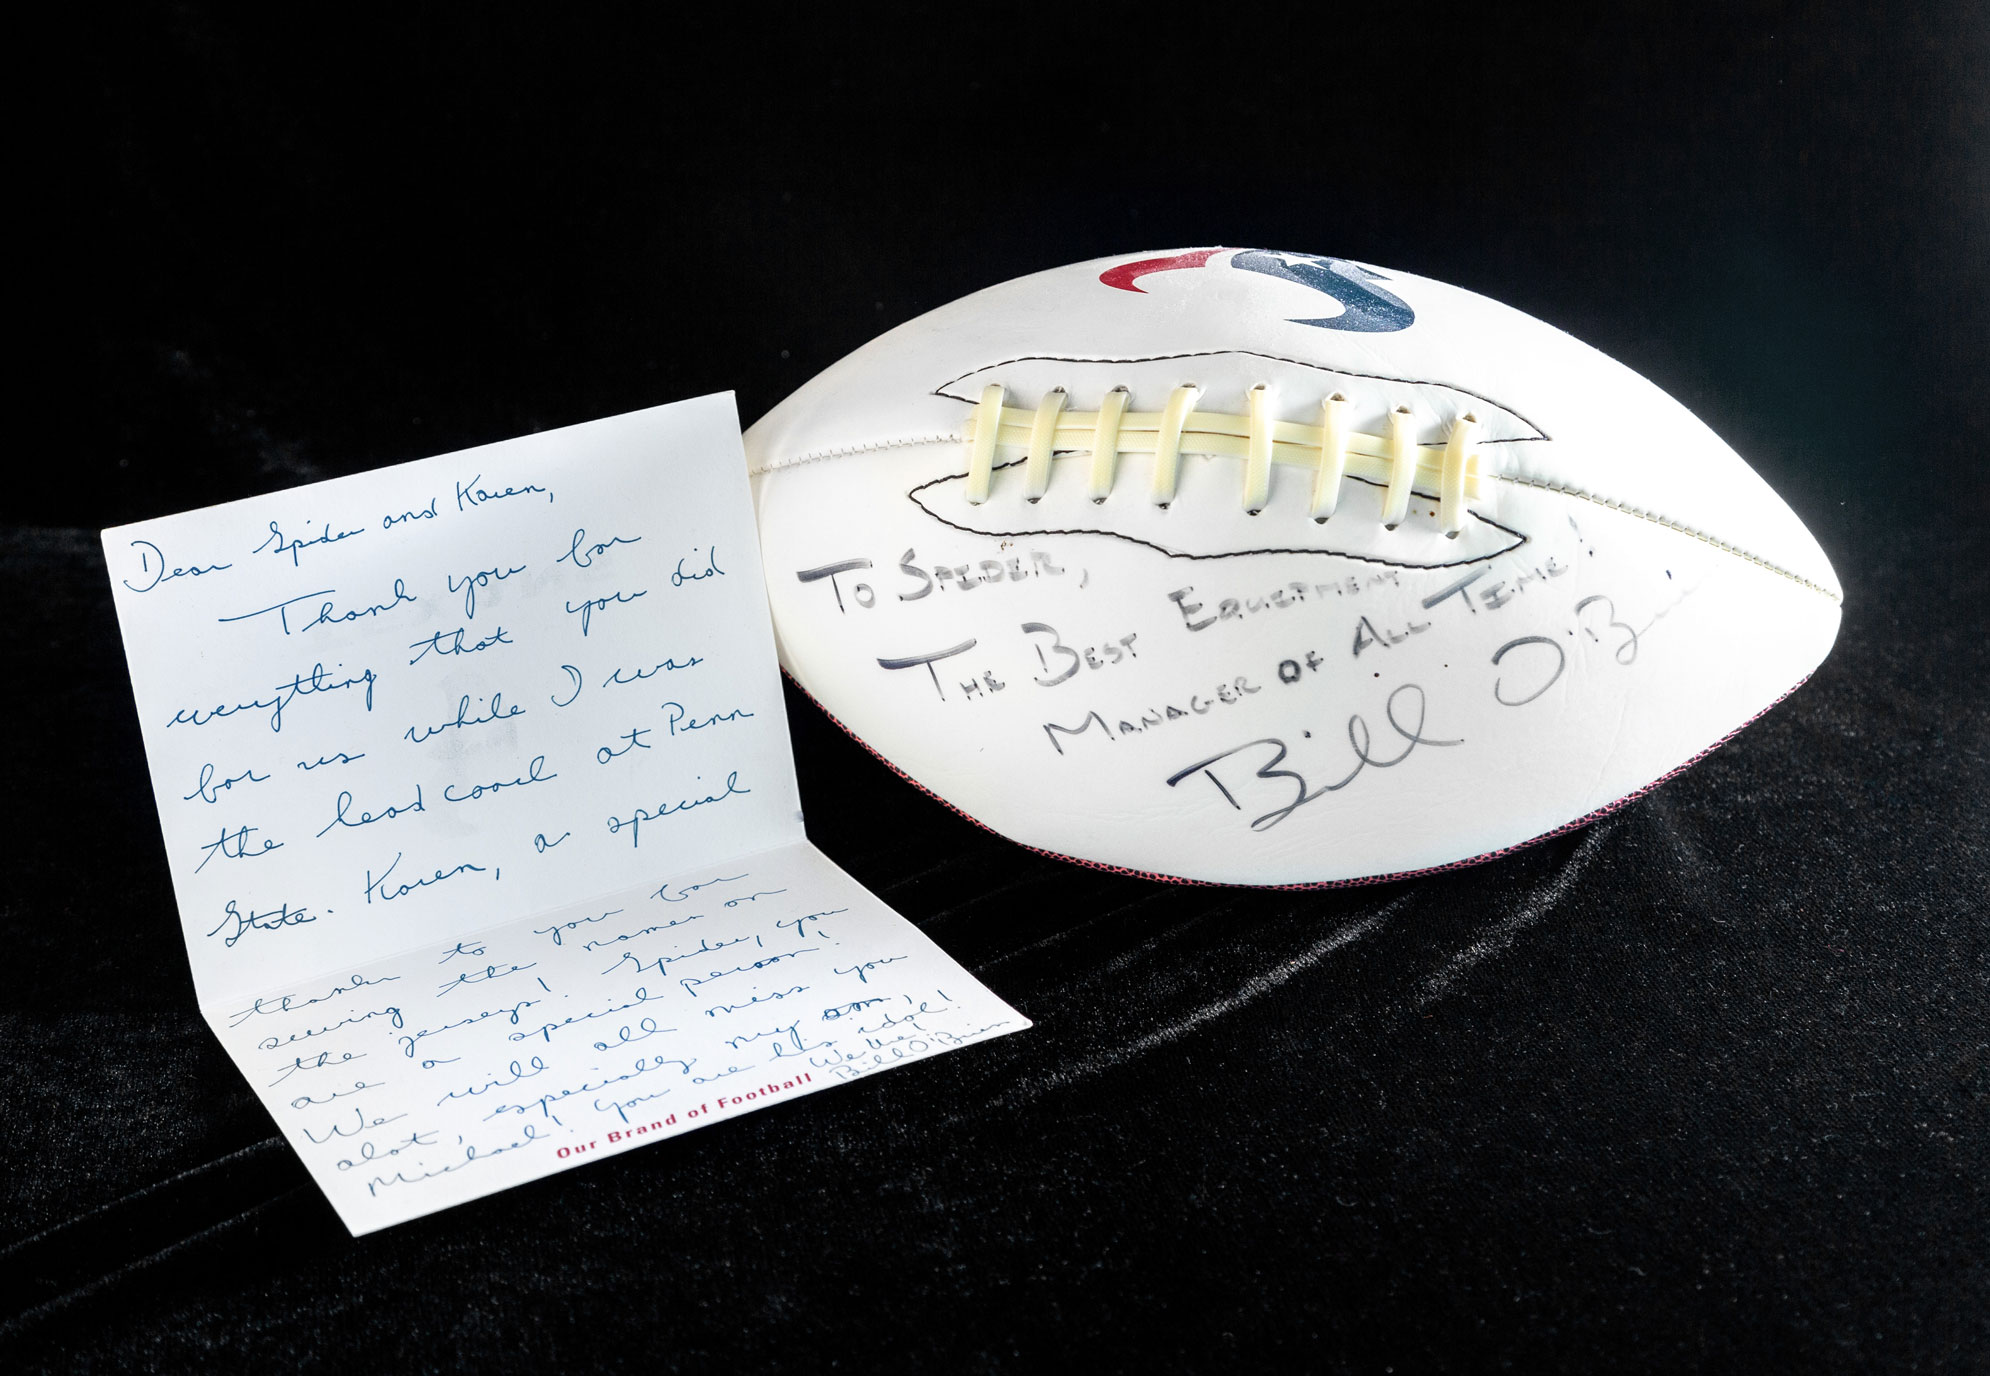 Dear Spider and Karen,
Thank you for
everything that you did
for us while I was
the head coach at Penn
State. Karen, a special
thanks to you for
sewing the names on
the jerseys! Spider, you
are a special person!
We will all miss you
alot, especially my son,
Michael! You are his idol!
Bill O'Brien
Our Brand of Football
To Spider,
The Best Equipment
Manager of All Time!
Bill O'Brien